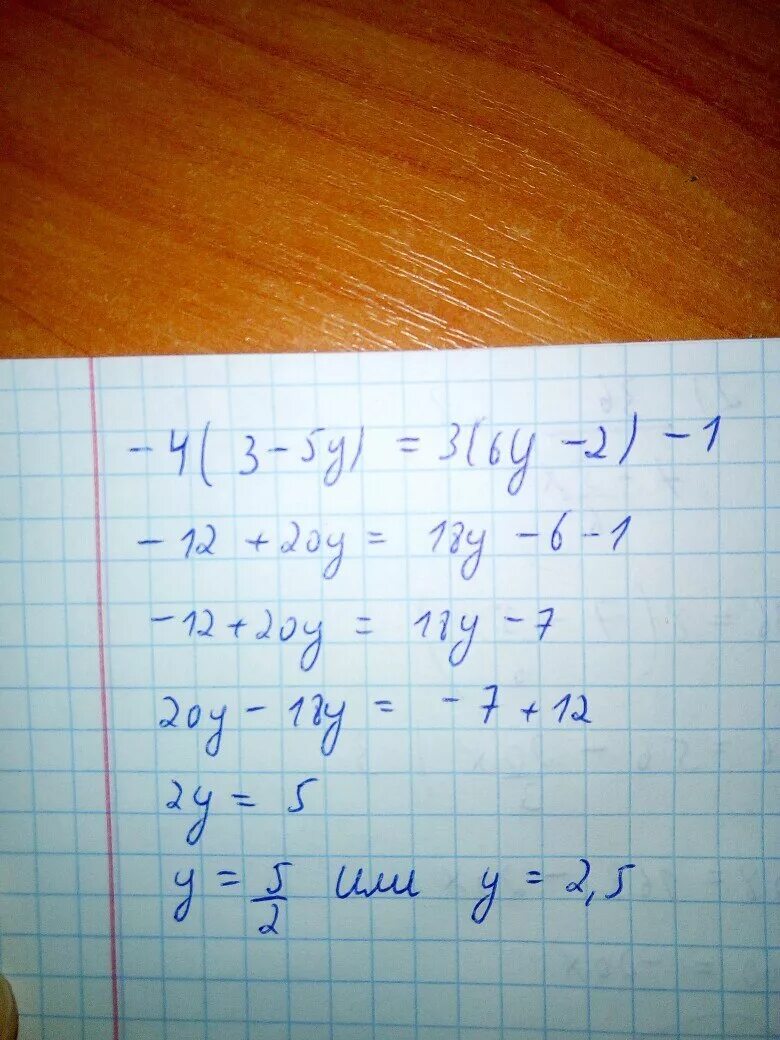 -4(3-5y) = 3(6y-2)-1
-12+20y = 18y-6-1
-12+20y = 18y-7
20y-18y = -7+12
2y = 5
y = 5/2 или y = 2,5